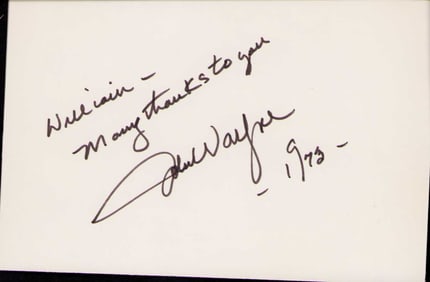 William –
Many thanks to you
John Wayne
– 1973 –